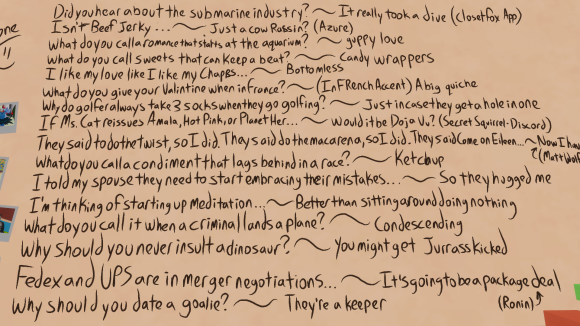 one
Did you hear about the submarine industry? ~ It really took a dive (closetfox App)
Isn't Beef Jerky ... ~ Just a cow Rassin? (Azure)
What do you call a romance that starts at the aquarium? ~ guppy love
What do you call sweets that can keep a beat? ~ Candy wrappers
I like my love like I like my Chaps... ~ Bottomless
What do you give your Valintine when in france? ~ (In French Accent) A big quiche
Why do golfer always take 3 socks when they go golfing? ~ Just incase they get a hole in one
If Ms. Cat reissues Amala, Hot Pink, or Planet Her... ~ Would it be Doja Vu? (Secret Squirrel-Discord)
They said to do the twist, so I did. They said do the macarena, so I did. They said Come on Eileen... ~ Now I hav
What do you call a condiment that lags behind in a race? ~ Ketchup
(Matt Wolf
I told my spouse they need to start embracing their mistakes... ~ So they hugged me
I'm thinking of starting up meditation... ~ Better than sitting around doing nothing
What do you call it when a criminal lands a plane? ~ Condescending
Why should you never insult a dinosaur? ~ You might get Jurrasskicked
Fedex and UPS are in merger negotiations... ~ It's going to be a package deal
Why should you date a goalie? ~ They're a keeper
(Ronin)